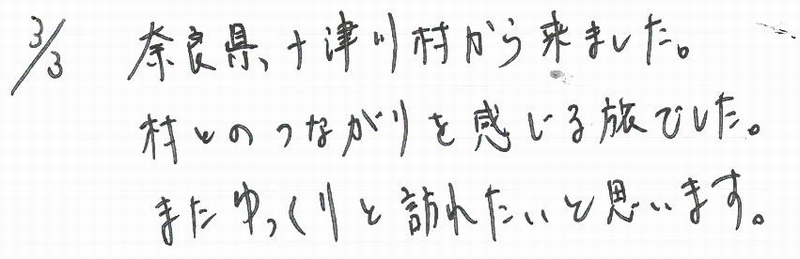 3/3 奈良県、十津川村から来ました。
村とのつながりを感じる旅でした。
またゆっくりと訪れたいと思います。